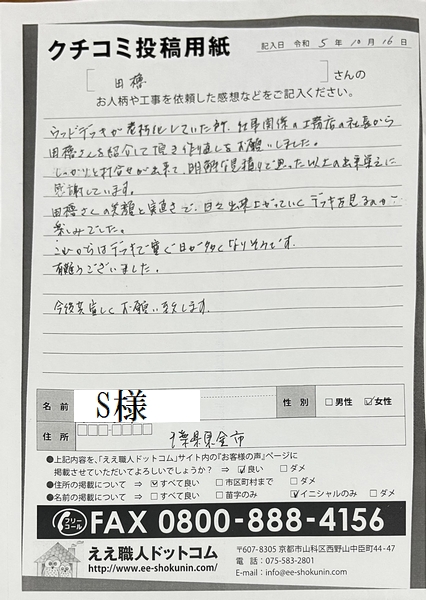 クチコミ投稿用紙
記入日 令和 5 年 10 月 16 日
田穂 さんの
お人柄や工事を依頼した感想などをご記入ください。
ウッドデッキが老朽化していた所、仕事関係の工務店の社長から
田穂さんを紹介して頂き作り直しをお願いしました。
しっかりと打合せが出来て、明瞭な見積りで思った以上の出来栄えに
感謝しています。
田穂さんの笑顔と実直さで、日々出来上がっていくデッキを見るのが
楽しみでした。
これからはデッキで寛ぐ日が多くなりそうです。
有難うございました。
今後共宜しくお願い致します。
名前 S様 性別 □男性 ☑女性
住所 千葉県東金市
●上記内容を、「ええ職人ドットコム」サイト内の『お客様の声』ページに
掲載させていただいてよろしいでしょうか？ ⇒ ☑良い □ダメ
●住所の掲載について ⇒ ☑すべて良い □市区町村まで □ダメ
●名前の掲載について ⇒ □すべて良い □苗字のみ ☑イニシャルのみ □ダメ
フリーコール FAX 0800-888-4156
ええ職人ドットコム
http://www.ee-shokunin.com/
〒607-8305 京都市山科区西野山中臣町44-47
電話：075-583-2801
E-mail：info@ee-shokunin.com